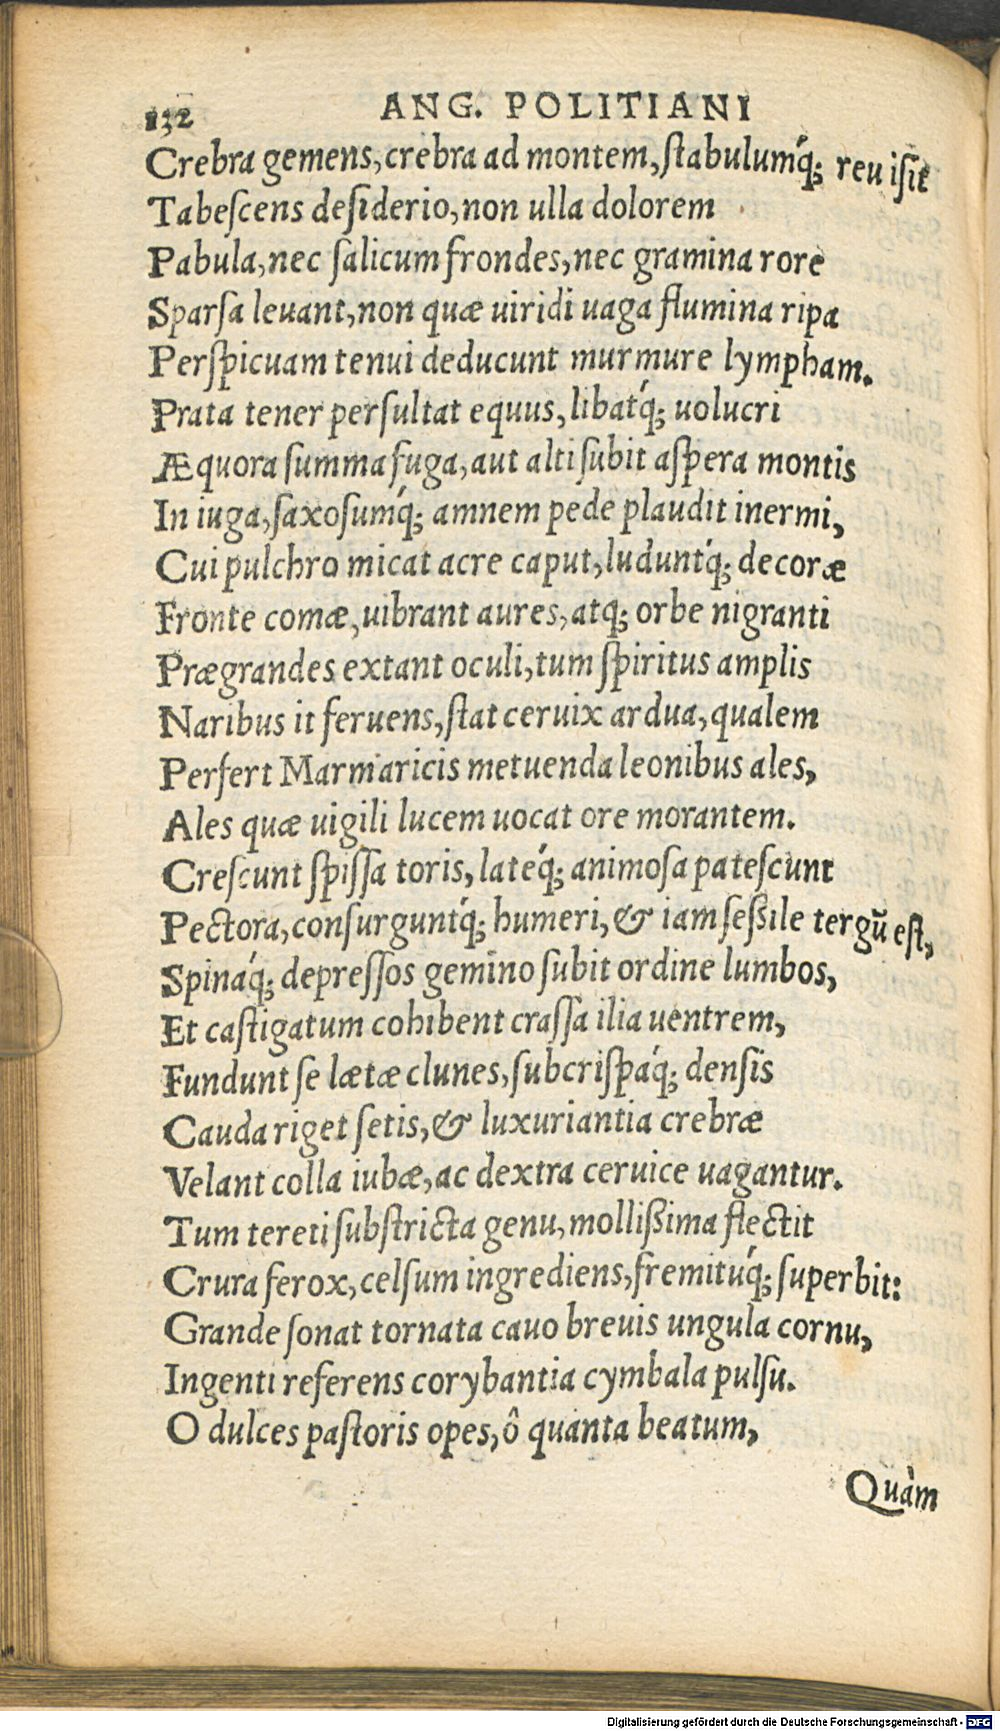 132
ANG. POLITIANI
Crebra gemens, crebra ad montem, ſtabulumq́; reuiſit
Tabeſcens deſiderio, non ulla dolorem
Pabula, nec ſalicum frondes, nec gramina rore
Sparſa leuant, non quæ uiridi uaga flumina ripa
Perſpicuam tenui deducunt murmure lympham.
Prata tener perſultat equus, libatq́; uolucri
Æquora ſumma fuga, aut alti ſubit aſpera montis
In iuga, ſaxoſumq́; amnem pede plaudit inermi,
Cui pulchro micat acre caput, luduntq́; decoræ
Fronte comæ, uibrant aures, atq; orbe nigranti
Prægrandes extant oculi, tum ſpiritus amplis
Naribus it feruens, ſtat ceruix ardua, qualem
Perfert Marmaricis metuenda leonibus ales,
Ales quæ uigili lucem uocat ore morantem.
Creſcunt ſpiſſa toris, lateq́; animoſa pateſcunt
Pectora, conſurguntq́; humeri, & iam ſeßile tergũ eſt,
Spinaq́; depreſſos gemino ſubit ordine lumbos,
Et caſtigatum cohibent craſſa ilia uentrem,
Fundunt ſe lætæ clunes, ſubcriſpaq́; denſis
Cauda riget ſetis, & luxuriantia crebræ
Velant colla iubæ, ac dextra ceruice uagantur.
Tum tereti ſubſtricta genu, mollißima flectit
Crura ferox, celſum ingrediens, fremituq́; ſuperbit:
Grande ſonat tornata cauo breuis ungula cornu,
Ingenti referens corybantia cymbala pulſu.
O dulces paſtoris opes, ô quanta beatum,
Quàm
Digitalisierung gefördert durch die Deutsche Forschungsgemeinschaft - DFG